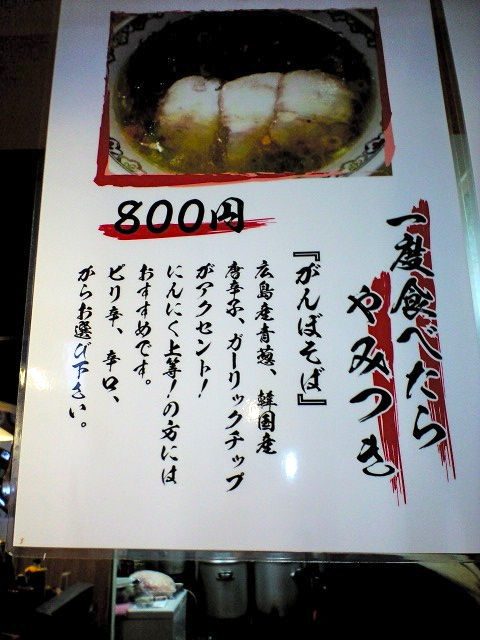 一度食べたら
やみつき
『がんぼそば』
800円
広島産青葱、韓国産
唐辛子、ガーリックチップ
がアクセント!
にんにく上等!の方には
おすすめです。
ピリ辛、辛口、
からお選び下さい。